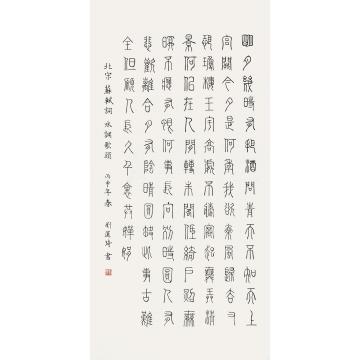 明月幾時有把酒問青天不知天上
宮闕今夕是何年我欲乘風歸去又
恐瓊樓玉宇高處不勝寒起舞弄清
影何似在人間轉朱閣低綺戶照無
眠不應有恨何事長向別時圓人有
悲歡離合月有陰晴圓缺此事古難
全但願人長久千里共嬋娟
北宋 蘇軾詞 水調歌頭 丙申年春 劉 書